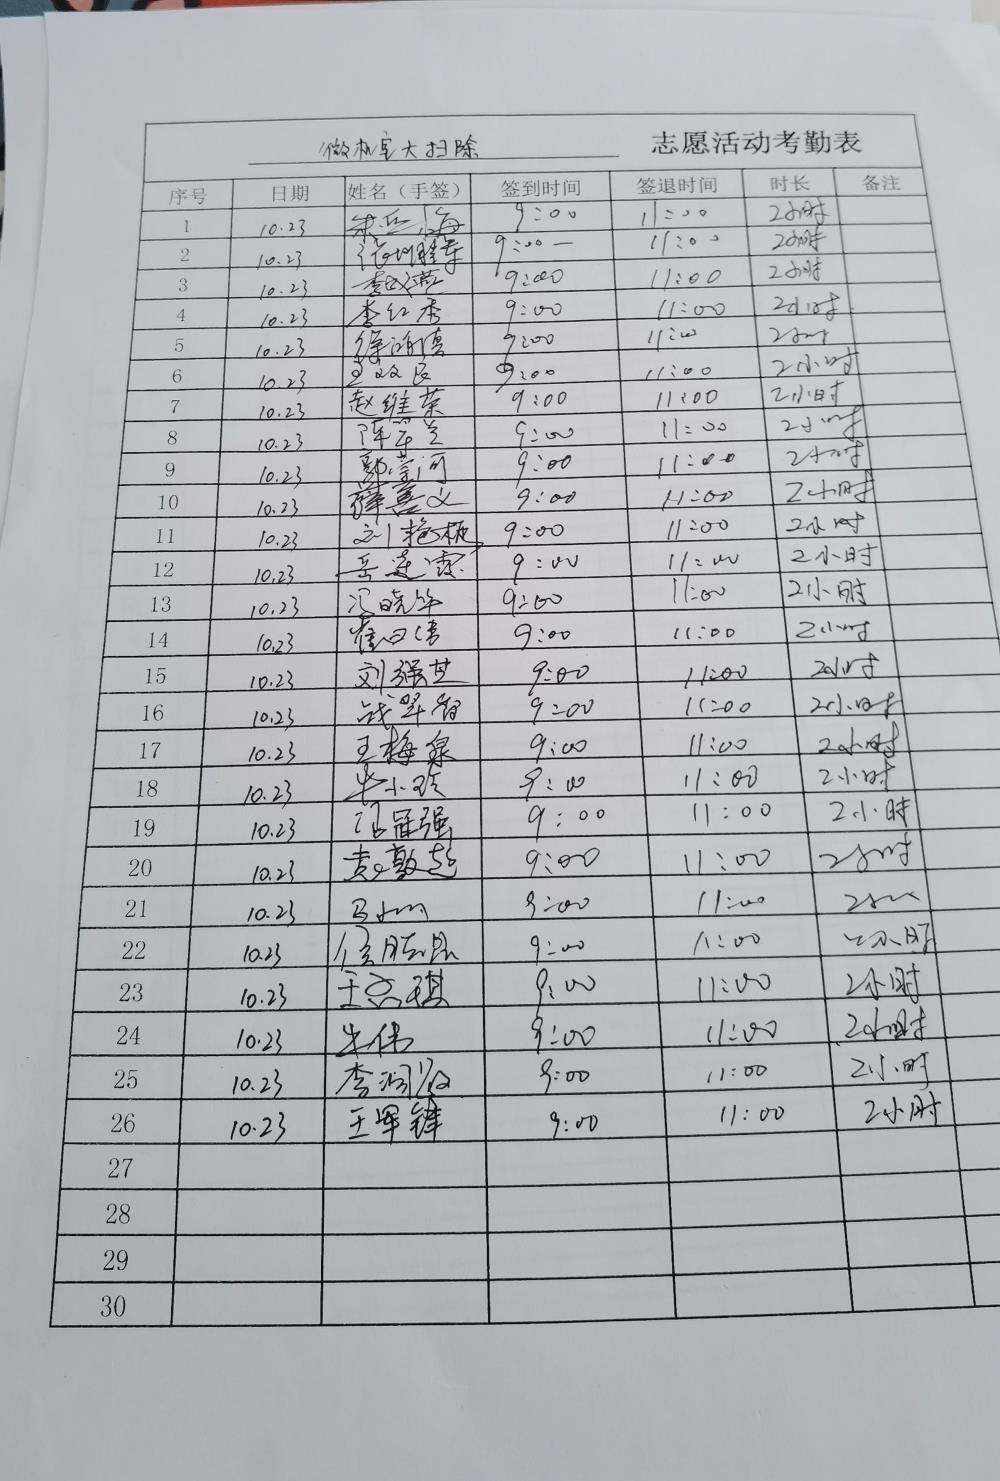 微机室大扫除 志愿活动考勤表
序号 日期 姓名（手签） 签到时间 签退时间 时长 备注
1 10.23 朱兵海 9:00 11:00 2小时
2 10.23 9:00 11:00 2小时
3 10.23 9:00 11:00 2小时
4 10.23 李红秀 9:00 11:00 2小时
5 10.23 9:00 11:00 2小时
6 10.23 王效民 9:00 11:00 2小时
7 10.23 赵维荣 9:00 11:00 2小时
8 10.23 9:00 11:00 2小时
9 10.23 郭宝河 9:00 11:00 2小时
10 10.23 薛喜文 9:00 11:00 2小时
11 10.23 刘艳梅 9:00 11:00 2小时
12 10.23 岳连霞 9:00 11:00 2小时
13 10.23 冯晓华 9:00 11:00 2小时
14 10.23 9:00 11:00 2小时
15 10.23 刘强芝 9:00 11:00 2小时
16 10.23 9:00 11:00 2小时
17 10.23 王梅泉 9:00 11:00 2小时
18 10.23 牛小玲 9:00 11:00 2小时
19 10.23 9:00 11:00 2小时
20 10.23 袁敦超 9:00 11:00 2小时
21 10.23 9:00 11:00 2小时
22 10.23 9:00 11:00 2小时
23 10.23 9:00 11:00 2小时
24 10.23 朱伟 9:00 11:00 2小时
25 10.23 9:00 11:00 2小时
26 10.23 王军锋 9:00 11:00 2小时
27
28
29
30